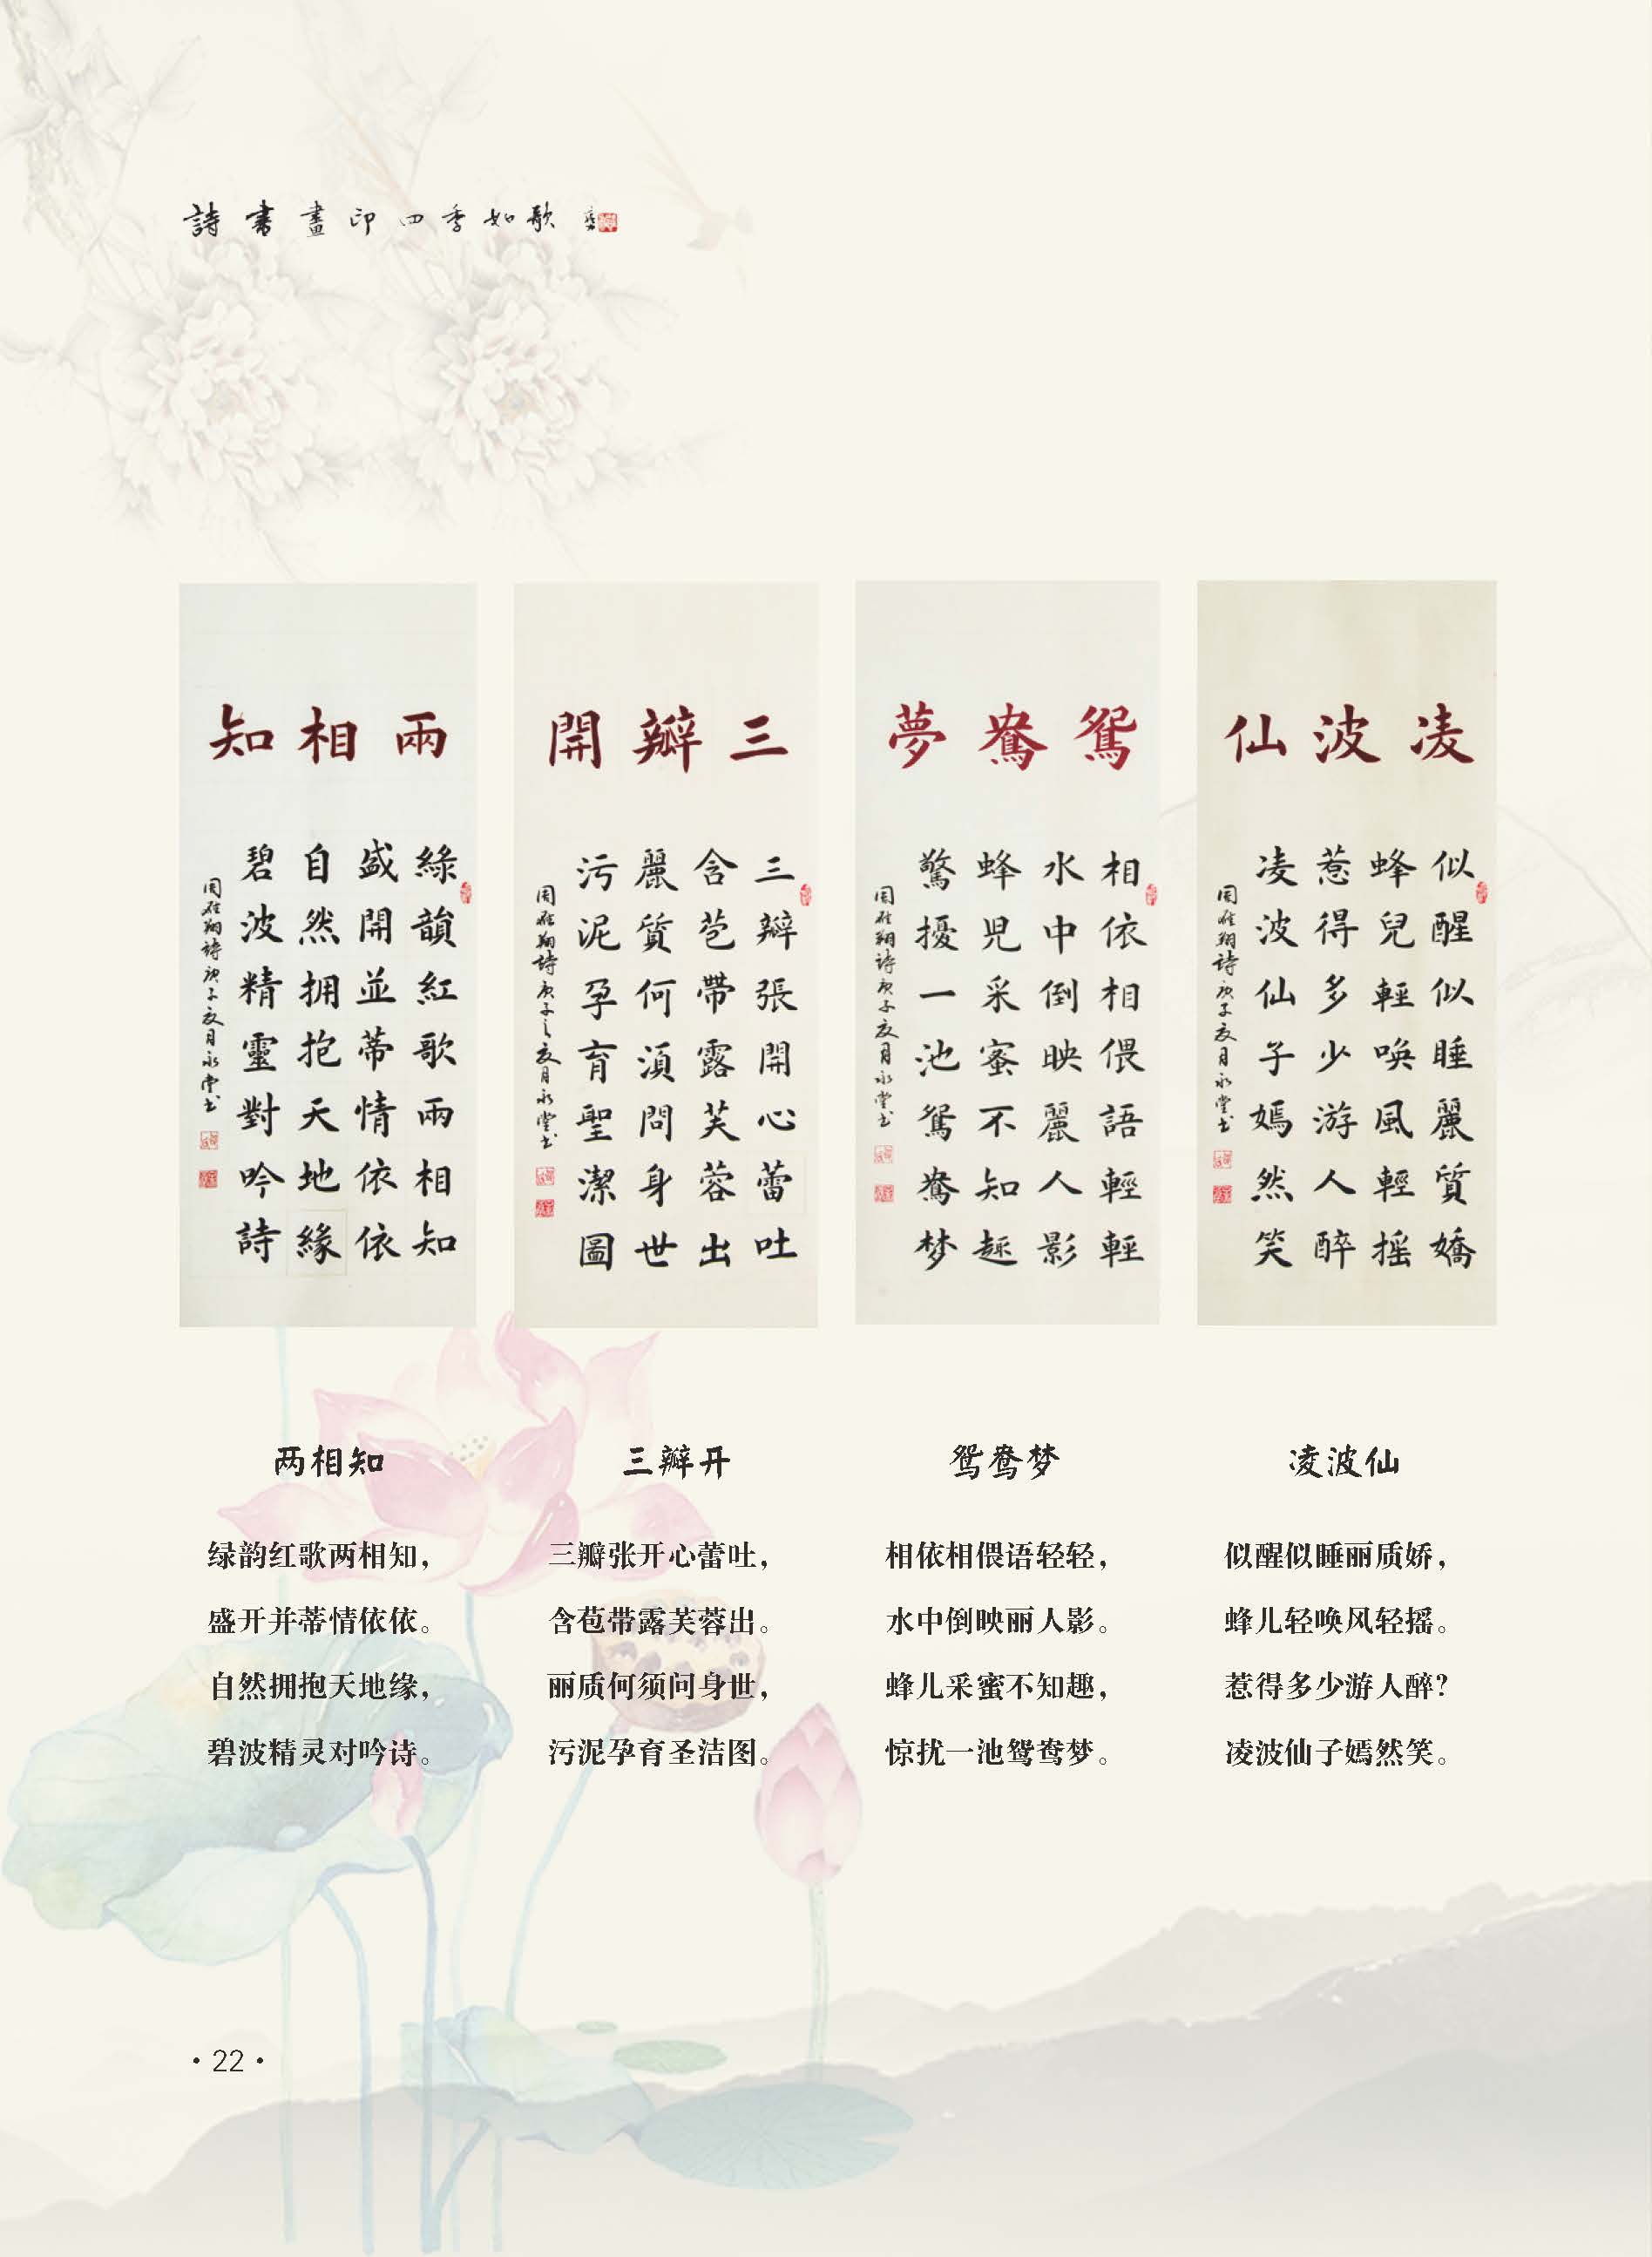 詩書畫印四季如歌
兩相知
綠韻紅歌兩相知
盛開並蒂情依依
自然拥抱天地緣
碧波精靈對吟詩
周雅翔詩庚子夏月永堂书
三瓣開
三瓣張開心蕾吐
含苞帶露芙蓉出
麗質何須問身世
污泥孕育聖潔圖
周雅翔詩庚子之夏月永堂书
鴛鴦夢
相依相偎語輕輕
水中倒映麗人影
蜂児采蜜不知趣
驚擾一池鴛鴦梦
周雅翔詩庚子夏月永堂书
凌波仙
似醒似睡麗質嬌
蜂兒輕喚風輕摇
惹得多少游人醉
凌波仙子嫣然笑
周雅翔詩庚子夏月永堂书
两相知
绿韵红歌两相知，
盛开并蒂情依依。
自然拥抱天地缘，
碧波精灵对吟诗。
三瓣开
三瓣张开心蕾吐，
含苞带露芙蓉出。
丽质何须问身世，
污泥孕育圣洁图。
鸳鸯梦
相依相偎语轻轻，
水中倒映丽人影。
蜂儿采蜜不知趣，
惊扰一池鸳鸯梦。
凌波仙
似醒似睡丽质娇，
蜂儿轻唤风轻摇。
惹得多少游人醉？
凌波仙子嫣然笑。
·22·